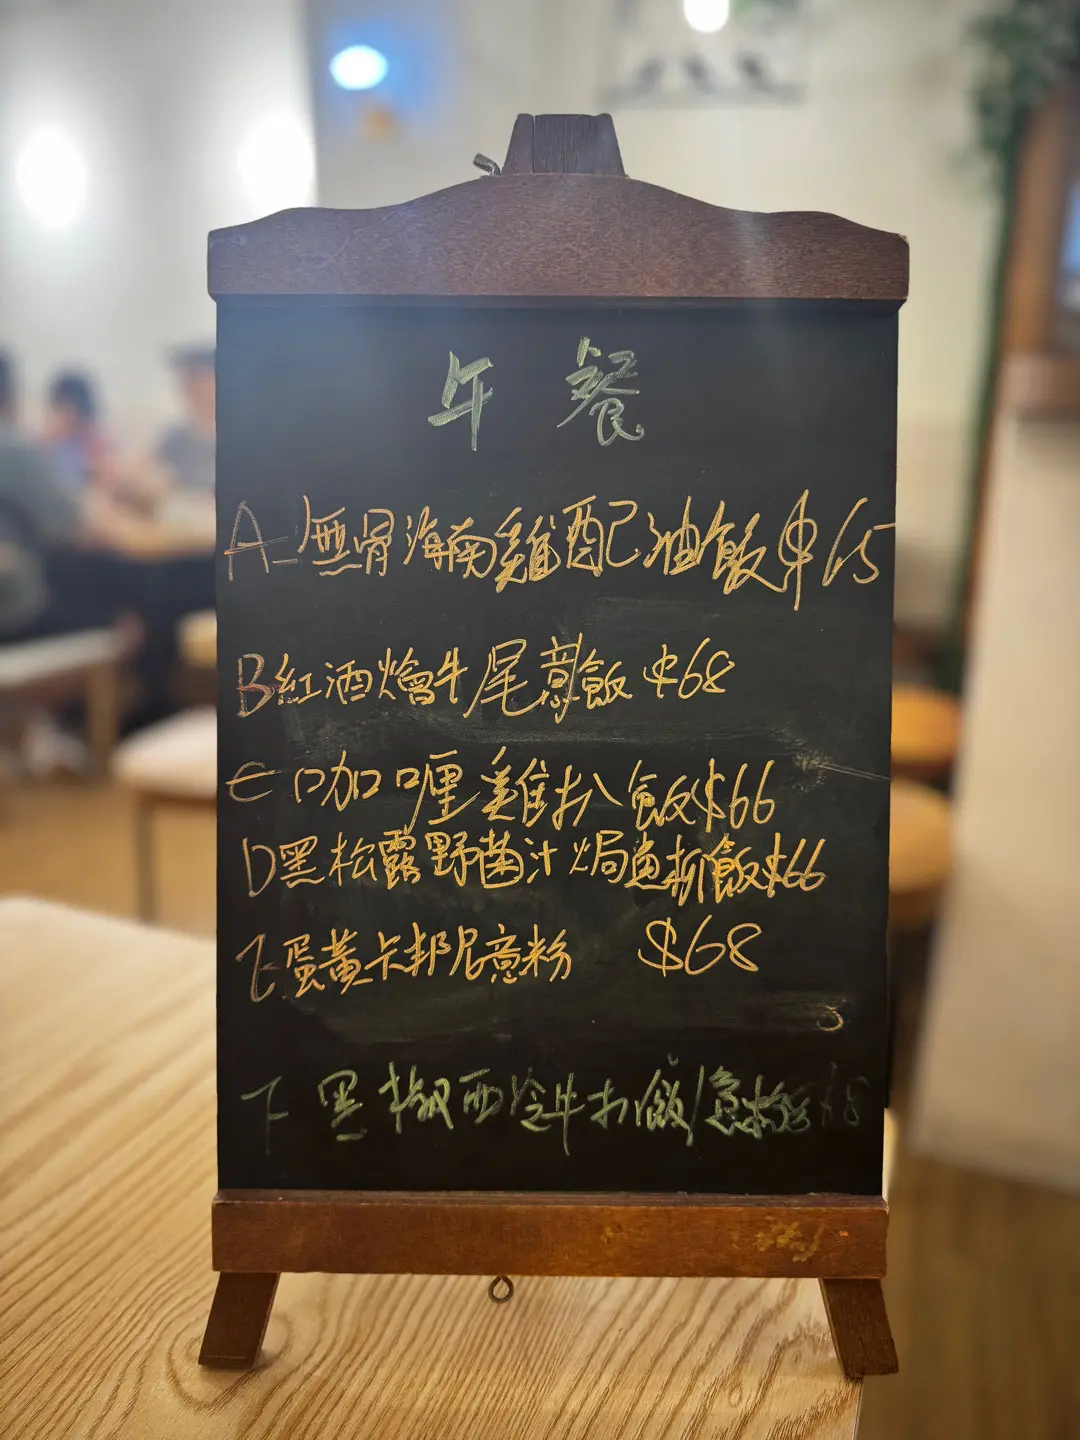 午餐
A 無骨海南雞配油飯 $65
B 紅酒燴牛尾意飯 $68
C 咖喱雞扒飯 $66
D 黑松露野菌汁焗魚柳飯 $66
E 蛋黃卡邦尼意粉 $68
F 黑椒西冷牛扒飯/意粉 $68